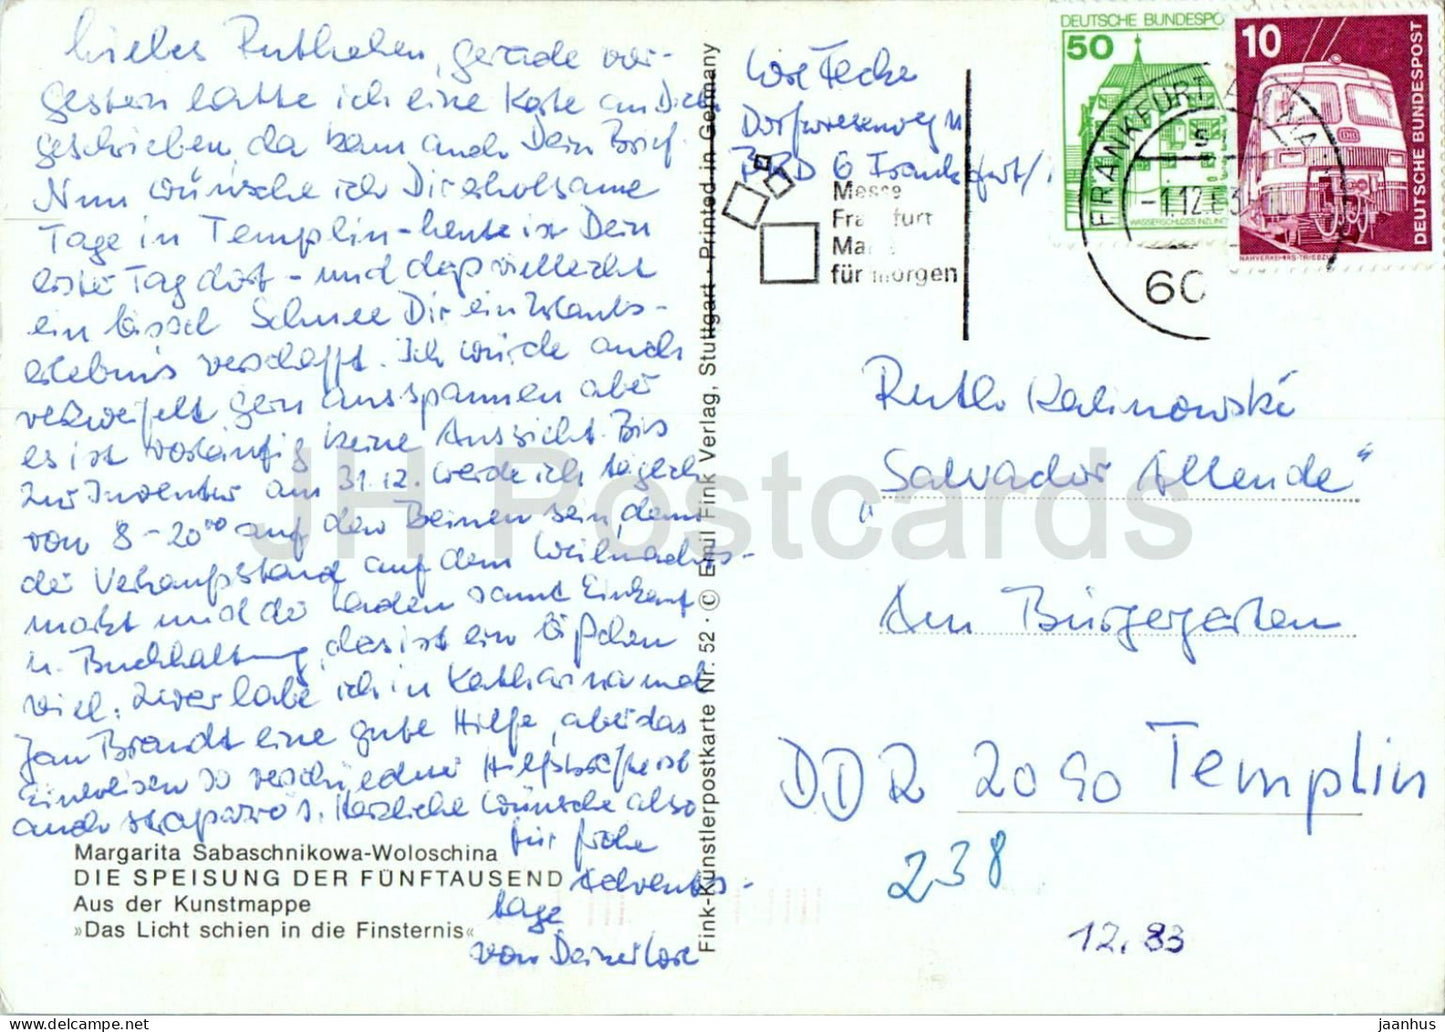 Liebes Ruthchen, gerade vor-
gestern hatte ich eine Karte an Dich
geschrieben, da kam auch Dein Brief.
Nun wünsche ich Dir erholsame
Tage in Templin - heute ist Dein
erster Tag dort - und daß vielleicht
ein bissel Schnee Dir ein Urlaubs-
erlebnis verschafft. Ich würde auch
verzweifelt gern ausspannen aber
es ist vorläufig keine Aussicht. Bis
zur Inventur am 31.12. werde ich täglich
von 8-20⁰⁰ auf den Beinen sein, denn
der Verkaufsstand auf dem Weihnachts-
markt und der Laden samt Einkauf
u. Buchhaltung, das ist ein bißchen
viel. Zwar habe ich in Katharina und
Jan Brandt eine gute Hilfe, aber das
Einweisen so verschiedner Hilfskräfte ist
auch strapaziös. Herzliche Wünsche also
für frohe
Advents-
tage
von Deiner Lore
Margarita Sabaschnikowa-Woloschina
DIE SPEISUNG DER FÜNFTAUSEND
Aus der Kunstmappe
»Das Licht schien in die Finsternis«
Fink-Künstlerpostkarte Nr. 52 · © Emil Fink Verlag, Stuttgart · Printed in Germany
Lore
Dorfwiesenweg 11
BRD 6 Frankfurt/
Messe
Frankfurt
Markt
für morgen
DEUTSCHE BUNDESPO
50
WASSERSCHLOSS INZLIN
10
DEUTSCHE BUNDESPOST
NAHVERKEHRS-TRIEBZU
FRANKFURT AM MAIN
-1.12.83
60
Ruth Kalinowski
„Salvador Allende"
Am Bürgergarten
DDR 2090 Templin
238
12.83
JH Postcards
jaanhus @ delcampe.net